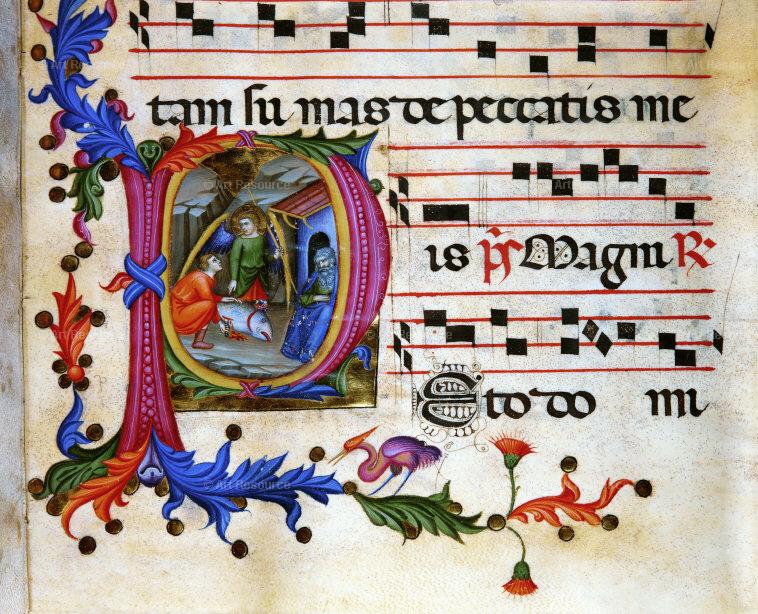 tam su mas de peccatis me
P
is ps Magni R
Esto do mi
© Art Resource